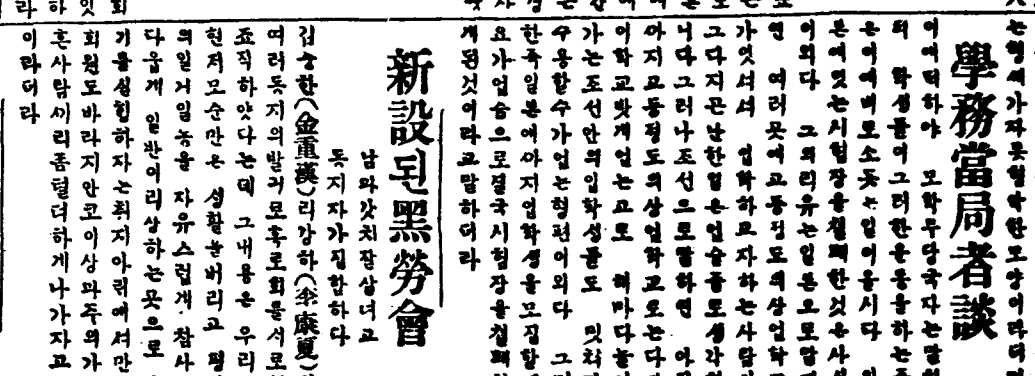 는형세가자못험악한모양이라더라
學務當局者談
이에대하야 모학무당국자는말
터 학생들이그러한운동을하는
은이에비로소듯는일이올시다
본에잇는시험장을철폐한것은사
이외다 그리유는일본으로말
면 여러곳에고등정도의상업학
가잇서서 입학하고자하는사람
그다지곤난한일은업슬줄로생각
니다그러나조선으로말하면 아
아지고등정도의상업학교로는다
이학교밧게업는고로 해마다늘
가는조선안의입학생들도 밋처
수용할수가업는형편이외다 그
한즉일본에아지업학생을모집할
요가업슴으로결국시험장을철폐
게된것이라고말하더라
新設된黑勞會
남와갓치잘살녀고
동지자가집합하다
김중한(金重漢)리강하(李康夏)
여러동지의발긔로흑로회를서로
조직하얏다는데 그내용은 우리
현저모순만은 생활을버리고 평
의일거일동을 자유스럽개 참사
다웁개 일반이리상하는곳으로
기를실힘하자는취지아래에서만
회원도바라지안코이상과주의가
혼사람끼리좀털더하게나가자고
이라더라